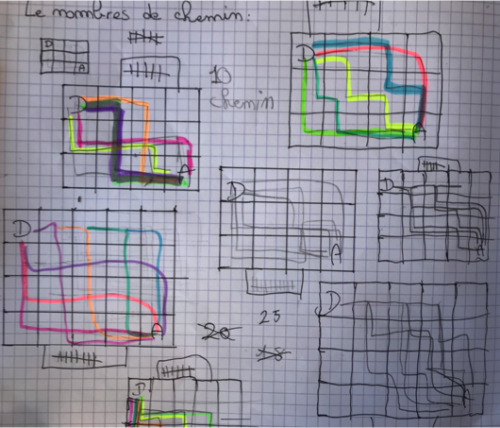 Le nombres de chemin:
D
A
10
chemin
D
A
D
A
D
A
D
A
D
A
25
20
18
D
A
D